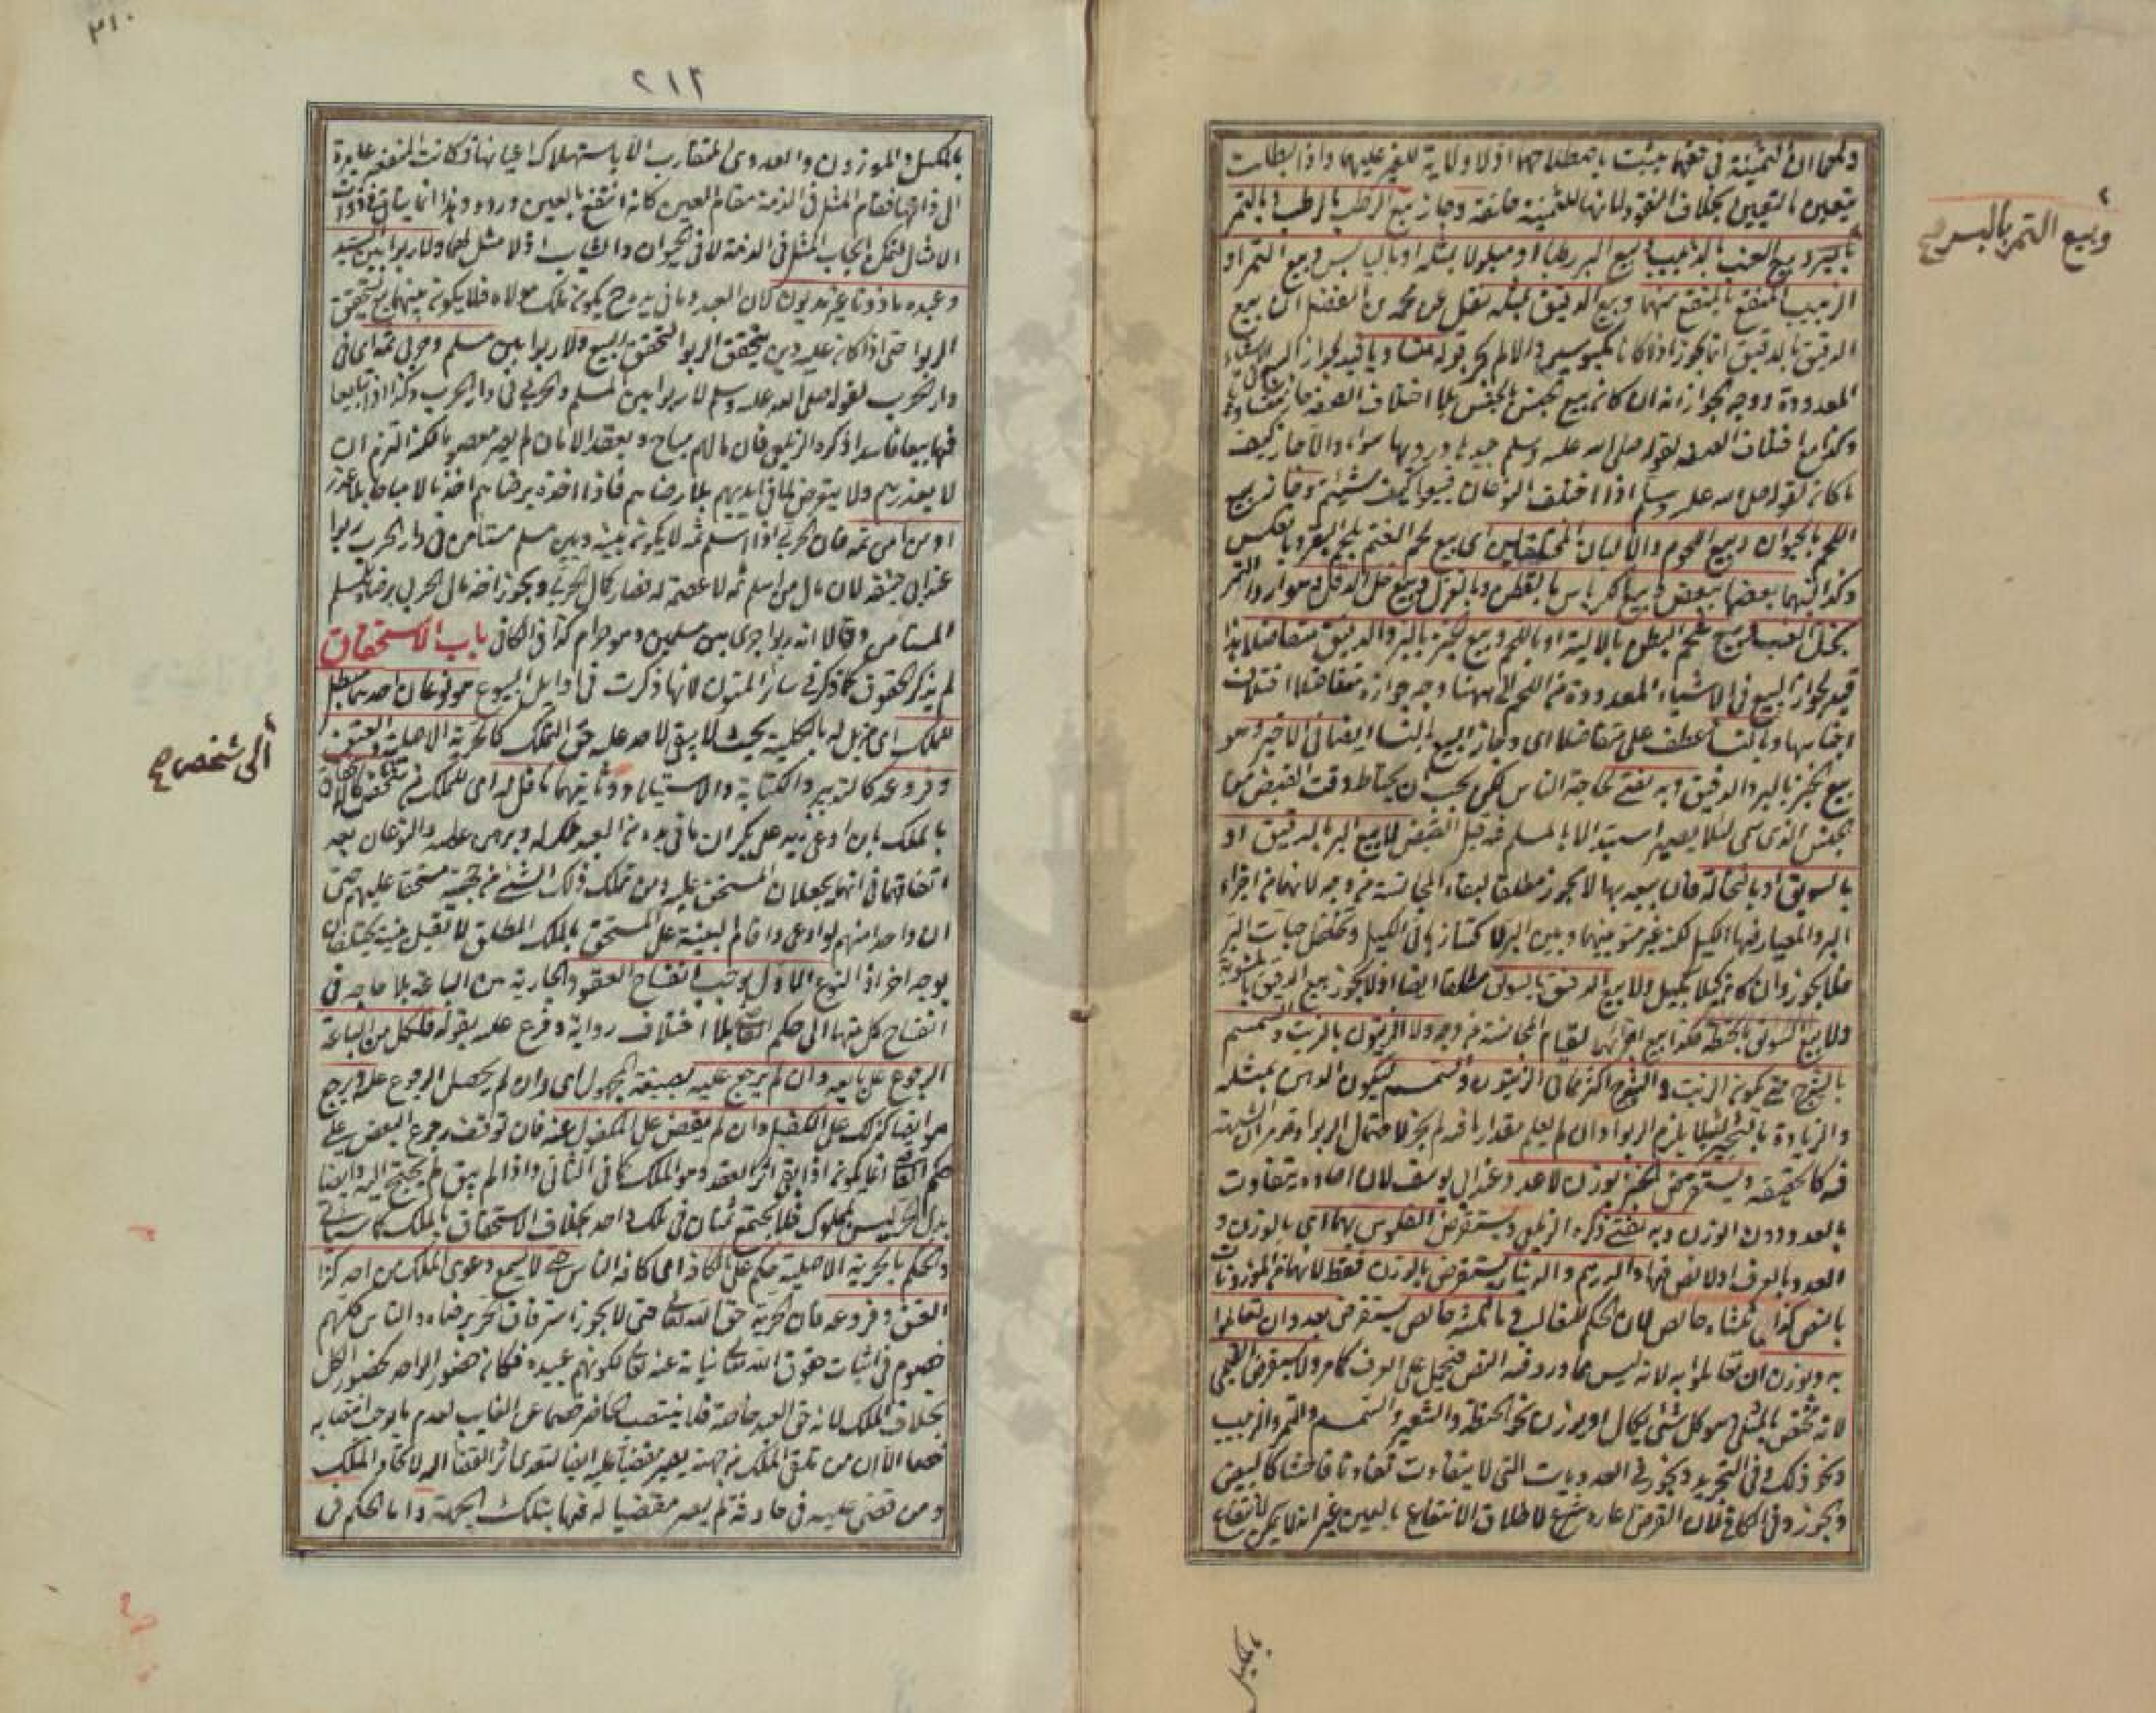 ولهما ان الثمنية في حقهما تثبت باصطلاحهما اذ لا ولاية للغير عليهما واذا بطلت
تتعين بالتعيين بخلاف النقود لانها للثمنية خلقة وجاز بيع الرطب بالرطب وبالتمر
وبيع التمر بالبسر صح
وبيع العنب بالزبيب وبيع البر رطبا او مبلولا بمثله او باليابس وبيع التمر او
الزبيب المنقع بالمنقع منهما وبيع الدقيق بمثله نقل عن محمد بن الفضل ان بيع
الدقيق بالدقيق انما يجوز اذا كانا مكبوسين والا لم يجز قوله متساويا قيد لجواز البيع
المعدودة ووجه الجواز انه ان كان بيع الجنس بالجنس بلا اختلاف الصفة جاز متساويا
وكذا مع اختلاف الصفة لقوله صلى الله عليه وسلم جيدها ورديها سواء والا جاز كيف
ما كان لقوله صلى الله عليه وسلم اذا اختلف النوعان فبيعوا كيف شئتم وجاز بيع
اللحم بالحيوان وبيع اللحوم والالبان المختلفة اي بيع لحم الغنم بلحم البقر وبالعكس
وكذا البانهما بعضها ببعض وبيع الكرباس بالقطن وبالغزل وبيع خل الدقل وهو اردأ التمر
بخل العنب وبيع شحم البطن بالالية او باللحم وبيع الخبز بالبر والدقيق متفاضلا هذا
قيد لجواز البيع في الاشياء المعدودة من اللحم الى ههنا وجه جوازه متفاضلا اختلاف
اجناسها وبالنسأ عطف على متفاضلا اي وجاز البيع بالنسأ ايضا في الاخير وهو
بيع الخبز بالبر والدقيق وبه يفتى لحاجة الناس لكن يجب ان يحتاط وقت القبض
الجنس الذي سمى لئلا يصير استبدالا بالمسلم فيه قبل القبض لا بيع البر بالدقيق او
بالسويق او بالنخالة فان بيعه بها لا يجوز مطلقا لبقاء المجانسة من وجه لانهما من اجزاء
البر والمعيار فيها الكيل لكنه غير مسو بينهما وبين البر لاكتنازها في الكيل وتخلخل حبات البر
فلا يجوز وان كان كيلا بكيل ولا بيع الدقيق بالسويق مطلقا ايضا اذ لا يجوز بيع الدقيق بالمقلية
ولا بيع السويق بالحنطة فكذا بيع اجزائهما لقيام المجانسة من وجه ولا الزيتون بالزيت والسمسم
بالشيرج حتى يكون الزيت والشيرج اكثر مما في الزيتون والسمسم ليكون الدهن بمثله
والزيادة بالثجير لئلا يلزم الربوا وان لم يعلم مقدار ما فيه لم يجز لاحتمال الربوا وقد مر ان الشبهة
فيه كالحقيقة ويستقرض الخبز بوزن لا عدد عند ابي يوسف لان احاده يتفاوت
بالعدد دون الوزن وبه يفتى ذكره الزيلعي ويستقرض الفلوس بهما اي بالوزن و
العدد وبالعرف اذ لا نص فيها والدرهم والدينار يستقرض بالوزن فقط لانهما من الموزونات
بالنص كذا ما ثلثاه خالص لان الحكم للغالب وما ثلثه خالص يستقرض بعدد ان تعاملوا
به وبوزن ان تعاملوا به لانه ليس مما ورد فيه النص فيحمل على العرف كما مر ولا يستقرض القيمي
لانه مختص بالمثلي وهو كل شئ يكال او يوزن نحو الحنطة والشعير والسمسم والتمر والزبيب
ونحو ذلك وفي التجريد ويجوز في العدديات التي لا يتفاوت تفاوتا فاحشا كالبيض
والجوز وفي الكافي لان القرض اعارة شرع لاطلاق الانتفاع بالعين غير انه لا يمكن الانتفاع
بالمكيل
٢١٠
٢١٢
بالمكيل والموزون والعددي المتقارب الا باستهلاك اعيانها وكانت المنفعة عائدة
الى ذاتها فقام المثل في الذمة مقام العين كانه انتفع بالعين ورده وهذا انما يتأتى في ذوات
الامثال لتمكن ايجاب المثل في الذمة لا في الحيوان والثياب اذ لا مثل لهما ولا ربوا بين السيد
وعبده ماذونا غير مديون لان العبد وما في يده ح يكون ملك مولاه فلا يكون بينهما بيع ليتحقق
الربوا حتى اذا كان عليه دين يتحقق الربوا لتحقق البيع ولا ربوا بين مسلم وحربي ثمه اي في
دار الحرب لقوله صلى الله عليه وسلم لا ربوا بين المسلم والحربي في دار الحرب وكذا اذا تبايعا
فيها بيعا فاسدا ذكره الزيلعي فان مالهم مباح وبعقد الامان لم يصر معصوما لكنه التزم ان
لا يغدرهم ولا يتعرض لما في ايديهم بلا رضاهم فاذا اخذه برضاهم اخذ مالا مباحا بلا غدر
او من امن ثمه فان الحربي اذا اسلم ثمه لا يكون بينه وبين مسلم مستأمن في دار الحرب ربوا
عند ابي حنيفة لان مال من اسلم ثمه لا عصمة له فصار كمال الحربي ويجوز اخذ مال الحربي برضاه للمسلم
المستأمن وقالا انه ربوا جرى بين مسلمين وهو حرام كذا في الكافي باب الاستحقاق
لم يذكر الحقوق كما ذكر في سائر المتون لانها ذكرت في اوايل البيوع هو نوعان احدهما مبطل
للملك اي مزيل له بالكلية بحيث لا يبقى لاحد عليه حق التملك كالحرية الاصلية والعتق
وفروعه كالتدبير والكتابة والاستيلاد وثانيهما ناقل له اي للملك من شخص كالاستحقاق
الى شخص صح
بالملك بان ادعى زيد على بكر ان ما في يده من العبد ملك له وبرهن عليه والنوعان بعد
اتفاقهما في انهما يجعلان المستحق عليه ومن تملك ذلك الشئ من جهته مستحقا عليهم حتى
ان واحدا منهم لو ادعى واقام البينة على المستحق بالملك المطلق لا تقبل بينته يختلفان
بوجه اخر اذ النوع الاول يوجب انفساخ العقود الجارية بين الباعة بلا حاجة في
انفساخ كل منها الى حكم القاضي بلا اختلاف رواية وفرع عليه بقوله فلكل من الباعة
الرجوع على بايعه وان لم يرجع عليه بصيغة المجهول اي وان لم يحصل الرجوع عليه ويرجع
هو ايضا كذلك على الكفيل وان لم يقض على المكفول عنه فان توقف رجوع البعض على
حكم القاضي انما يكون اذا بقي اثر العقد وهو الملك كما في الثاني واذا لم يبق لم يحتج اليه وايضا
بدل الحر ليس بمملوك فلا يجتمع ثمنان في ملك واحد بخلاف الاستحقاق بالملك كما سيأتي
والحكم بالحرية الاصلية حكم على الكافة اي كافة الناس حتى لا يسمع دعوى الملك من احد وكذا
العتق وفروعه فان الحرية حق الله تعالى حتى لا يجوز استرقاق الحر برضاه والناس كلهم
خصوم في اثبات حقوق الله تعالى نيابة عنه تعالى لكونهم عبيده فكان حضور الواحد كحضور الكل
بخلاف الملك لانه حق العبد خاصة فلا ينتصب الحاضر خصما عن الغايب لعدم ما يوجب انتصابه
خصما الا ان من تلقى الملك من جهته يصير مقضيا عليه ايضا لتعدي اثر القضاء اليه لاتحاد الملك
ومن قضى عليه في حادثة لم يصر مقضيا له فيها بتلك الجهة واما الحكم في